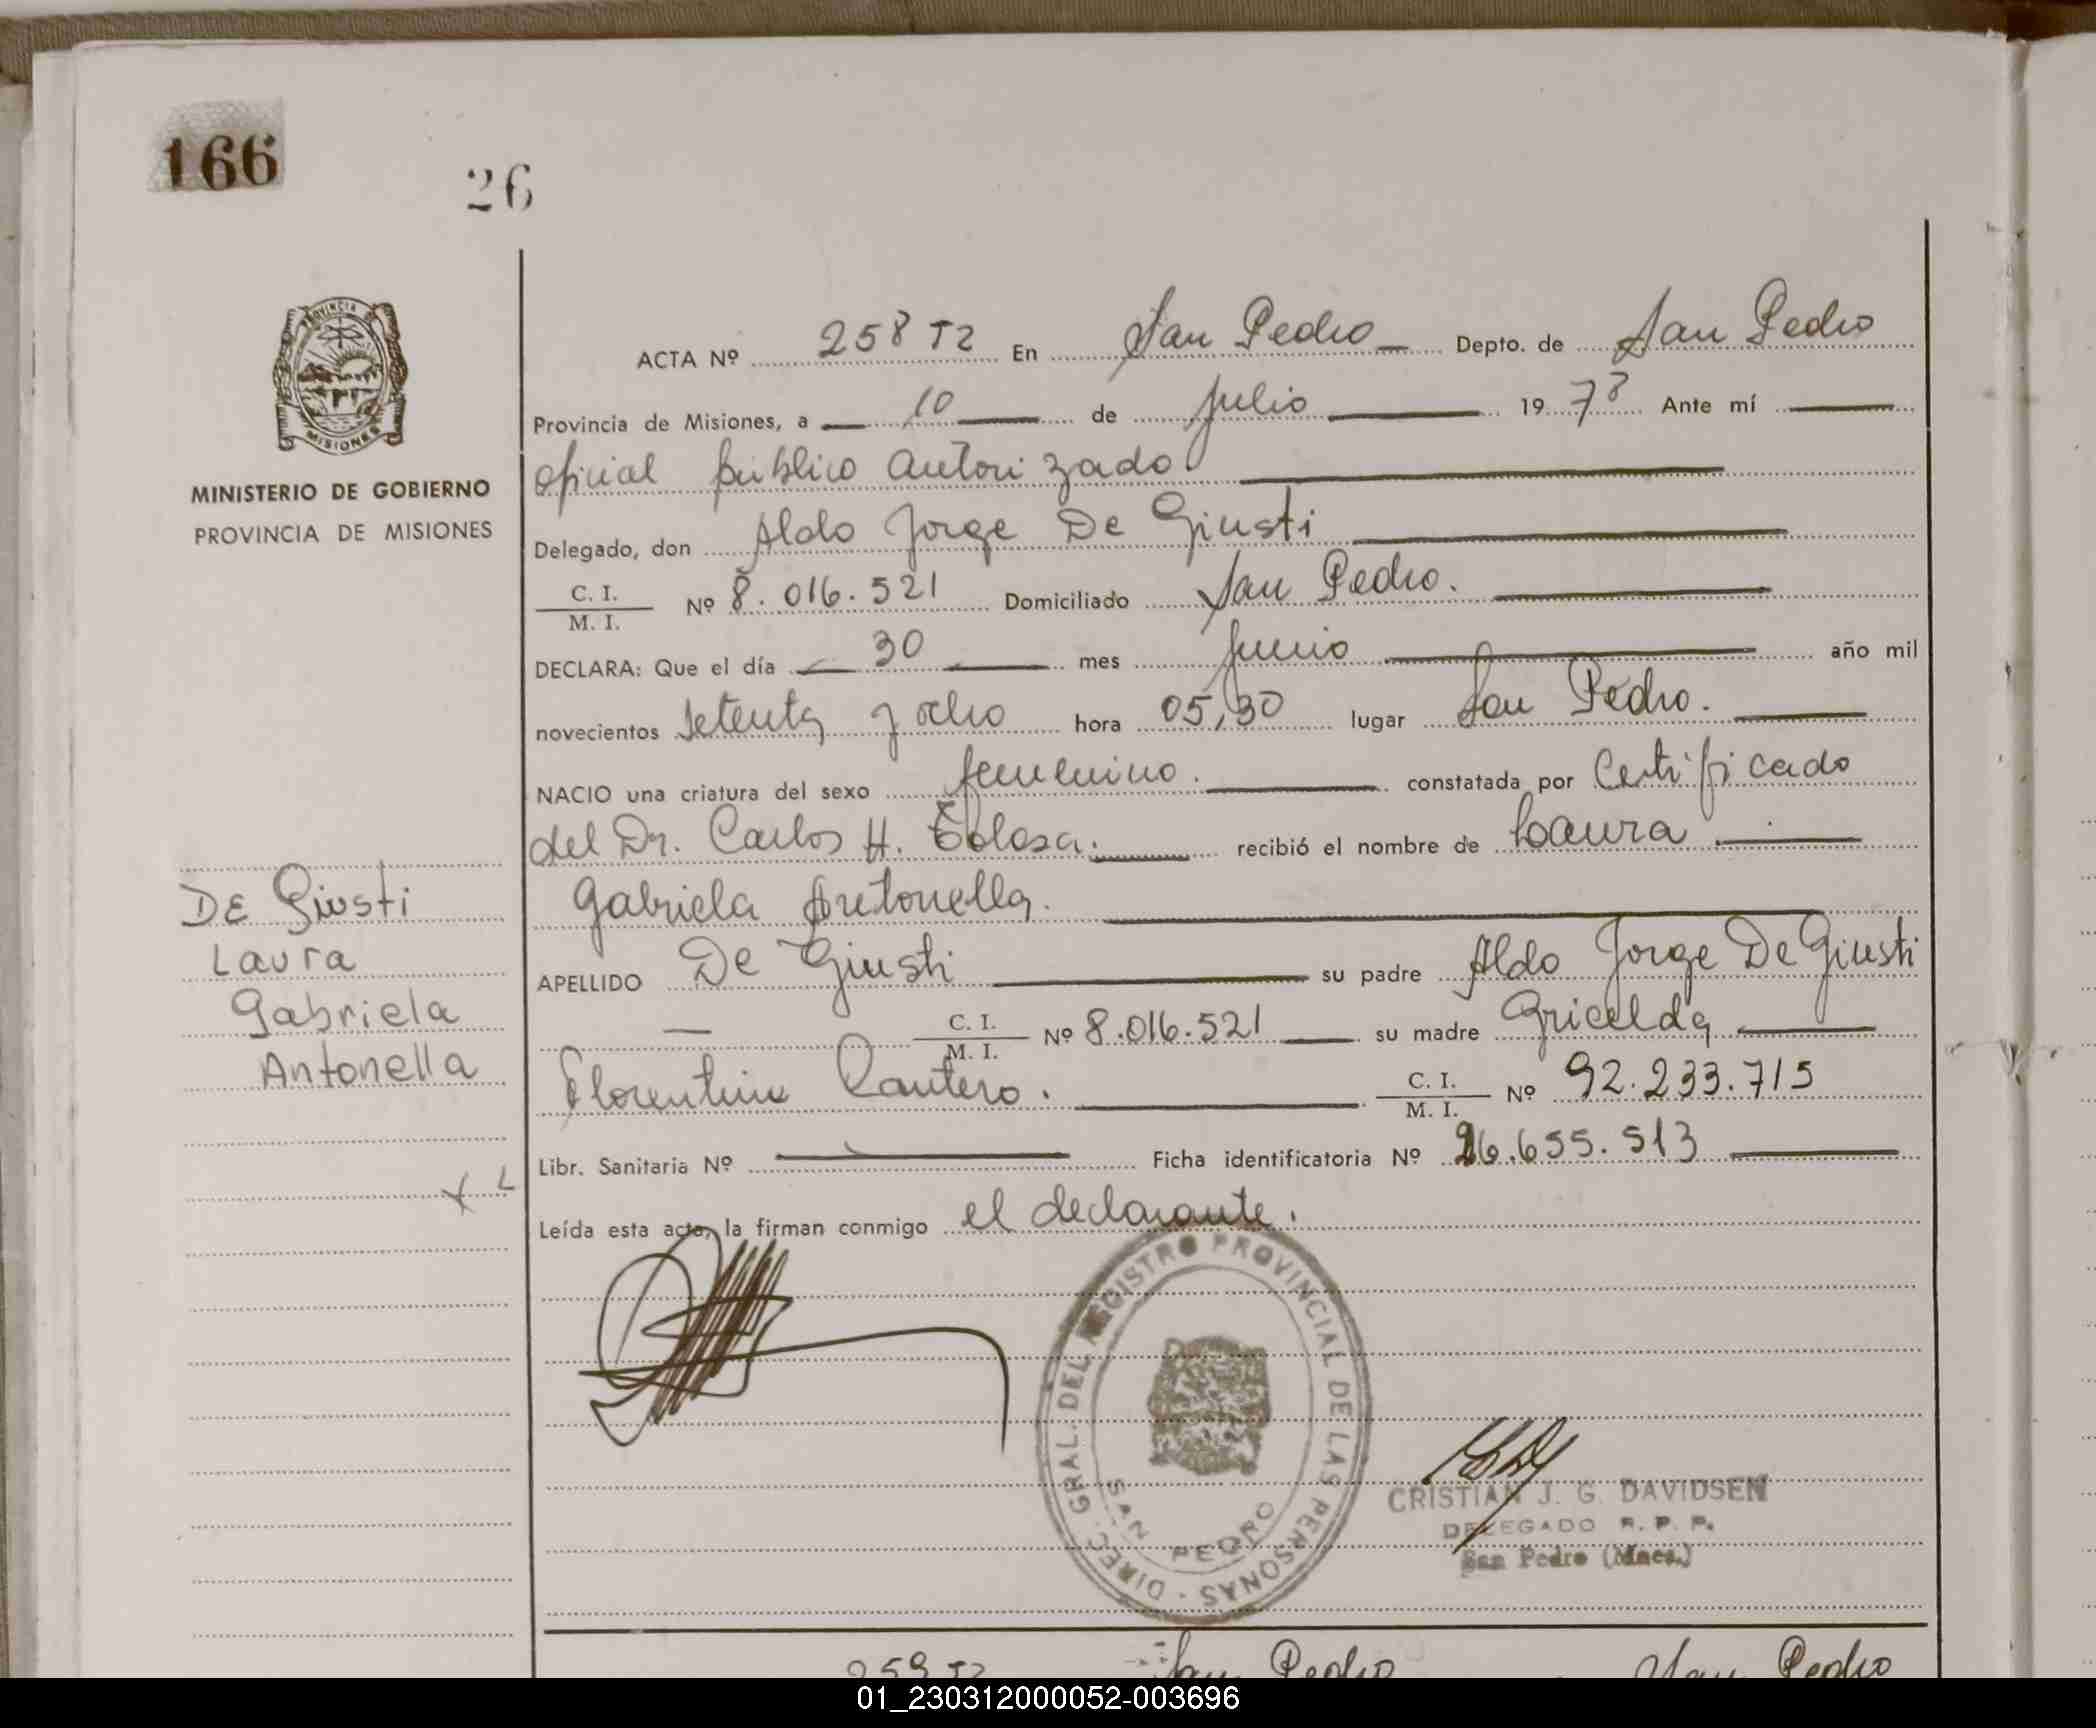 166
26
PROVINCIA DE
MISIONES
MINISTERIO DE GOBIERNO
PROVINCIA DE MISIONES
ACTA Nº 258 T2 En San Pedro Depto. de San Pedro
Provincia de Misiones, a 10 de julio 1978 Ante mí
oficial público autorizado
Delegado, don Aldo Jorge De Giusti
C. I.
M. I. Nº 8.016.521 Domiciliado San Pedro.
DECLARA: Que el día 30 mes junio año mil
novecientos setenta y ocho hora 05,30 lugar San Pedro.
NACIO una criatura del sexo femenino. constatada por Certificado
del Dr. Carlos H. Tolosa. recibió el nombre de Laura
Gabriela Antonella.
APELLIDO De Giusti su padre Aldo Jorge De Giusti
C. I.
M. I. Nº 8.016.521 su madre Gricelda
Florentina Cantero. C. I.
M. I. Nº 92.233.715
Libr. Sanitaria Nº Ficha identificatoria Nº 26.655.513
Leída esta acta, la firman conmigo el declarante.
De Giusti
Laura
Gabriela
Antonella
DIREC. GRAL. DEL REGISTRO PROVINCIAL DE LAS PERSONAS
SAN PEDRO
CRISTIAN J. G. DAVIDSEN
DELEGADO R. P. P.
San Pedro (Mnes.)
259 T2 San Pedro San Pedro
01_230312000052-003696